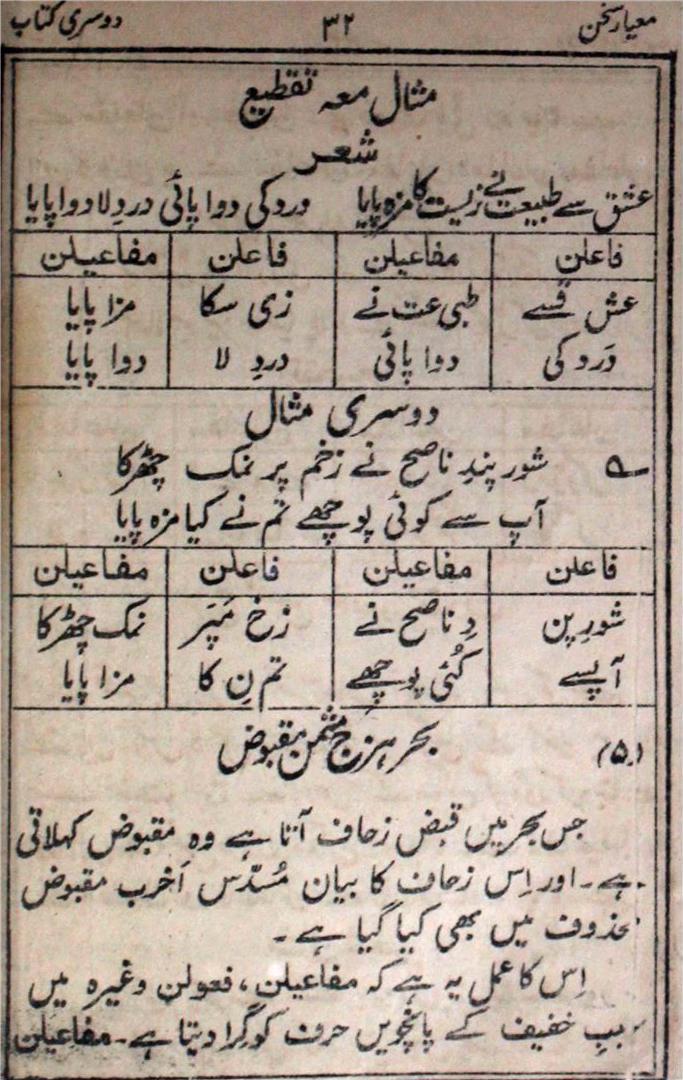 معیار سخن ۳۲ دوسری کتاب
مثال معہ تقطیع
شعر
عشق سے طبیعت نے زیست کا مزہ پایا درد کی دوا پائی دردِ لا دوا پایا
فاعلن مفاعیلن فاعلن مفاعیلن
عش قسے طبی عت نے زی سکا مزا پایا
دَرد کی دوا پائی دردِ لا دوا پایا
دوسری مثال
شور پندِ ناصح نے زخم پر نمک چھڑکا
آپ سے کوئی پوچھے تم نے کیا مزہ پایا
فاعلن مفاعیلن فاعلن مفاعیلن
شورِ پن دِ ناصح نے زخ مَپَر نمک چھڑکا
آپسے کُئی پوچھے تم نِ کا مزا پایا
(۵) بحر ہزج مثمن مقبوض
جس بحر میں قبض زحاف آتا ہے وہ مقبوض کہلاتی
ہے۔ اور اِس زحاف کا بیان مُسدّس اَخرب مقبوض
محذوف میں بھی کیا گیا ہے۔
اِس کا عمل یہ ہے کہ مفاعیلن، فعولن وغیرہ میں
سببِ خفیف کے پانچویں حرف کو گِرا دیتا ہے۔ مفاعیلن